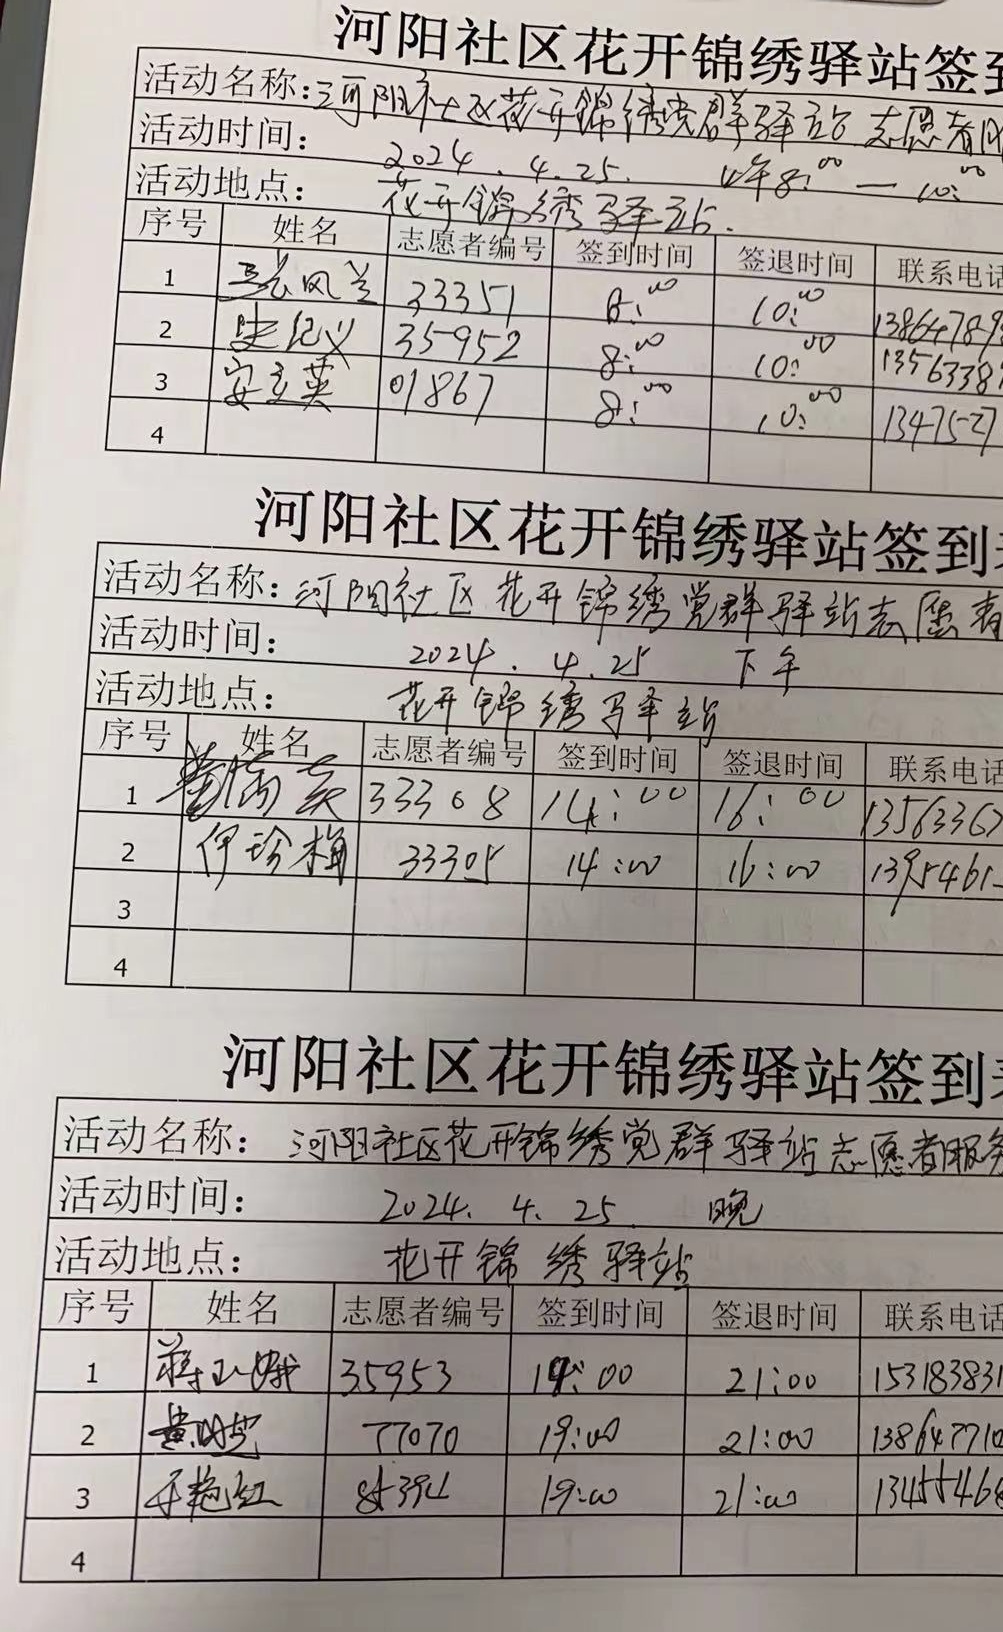 河阳社区花开锦绣驿站签到
活动名称:河阳社区花开锦绣党群驿站志愿者服
活动时间: 2024.4.25. 上午8:00—10:00
活动地点: 花开锦绣驿站.
序号 姓名 志愿者编号 签到时间 签退时间 联系电话
1 凤兰 33351 8:00 10:00 13864789
2 史纪义 35952 8:00 10:00 1356338
3 安立英 01867 8:00 10:00 1347527
4
河阳社区花开锦绣驿站签到表
活动名称:河阳社区花开锦绣党群驿站志愿者
活动时间: 2024.4.25 下午
活动地点: 花开锦绣驿站
序号 姓名 志愿者编号 签到时间 签退时间 联系电话
1 33308 14:00 16:00 1356336
2 伊珍梅 33305 14:00 16:00 1395461
3
4
河阳社区花开锦绣驿站签到表
活动名称: 河阳社区花开锦绣党群驿站志愿者服务
活动时间: 2024.4.25. 晚
活动地点: 花开锦绣驿站
序号 姓名 志愿者编号 签到时间 签退时间 联系电话
1 35953 19:00 21:00 153183831
2 77070 19:00 21:00 138647710
3 艳红 85394 19:00 21:00 13455468
4